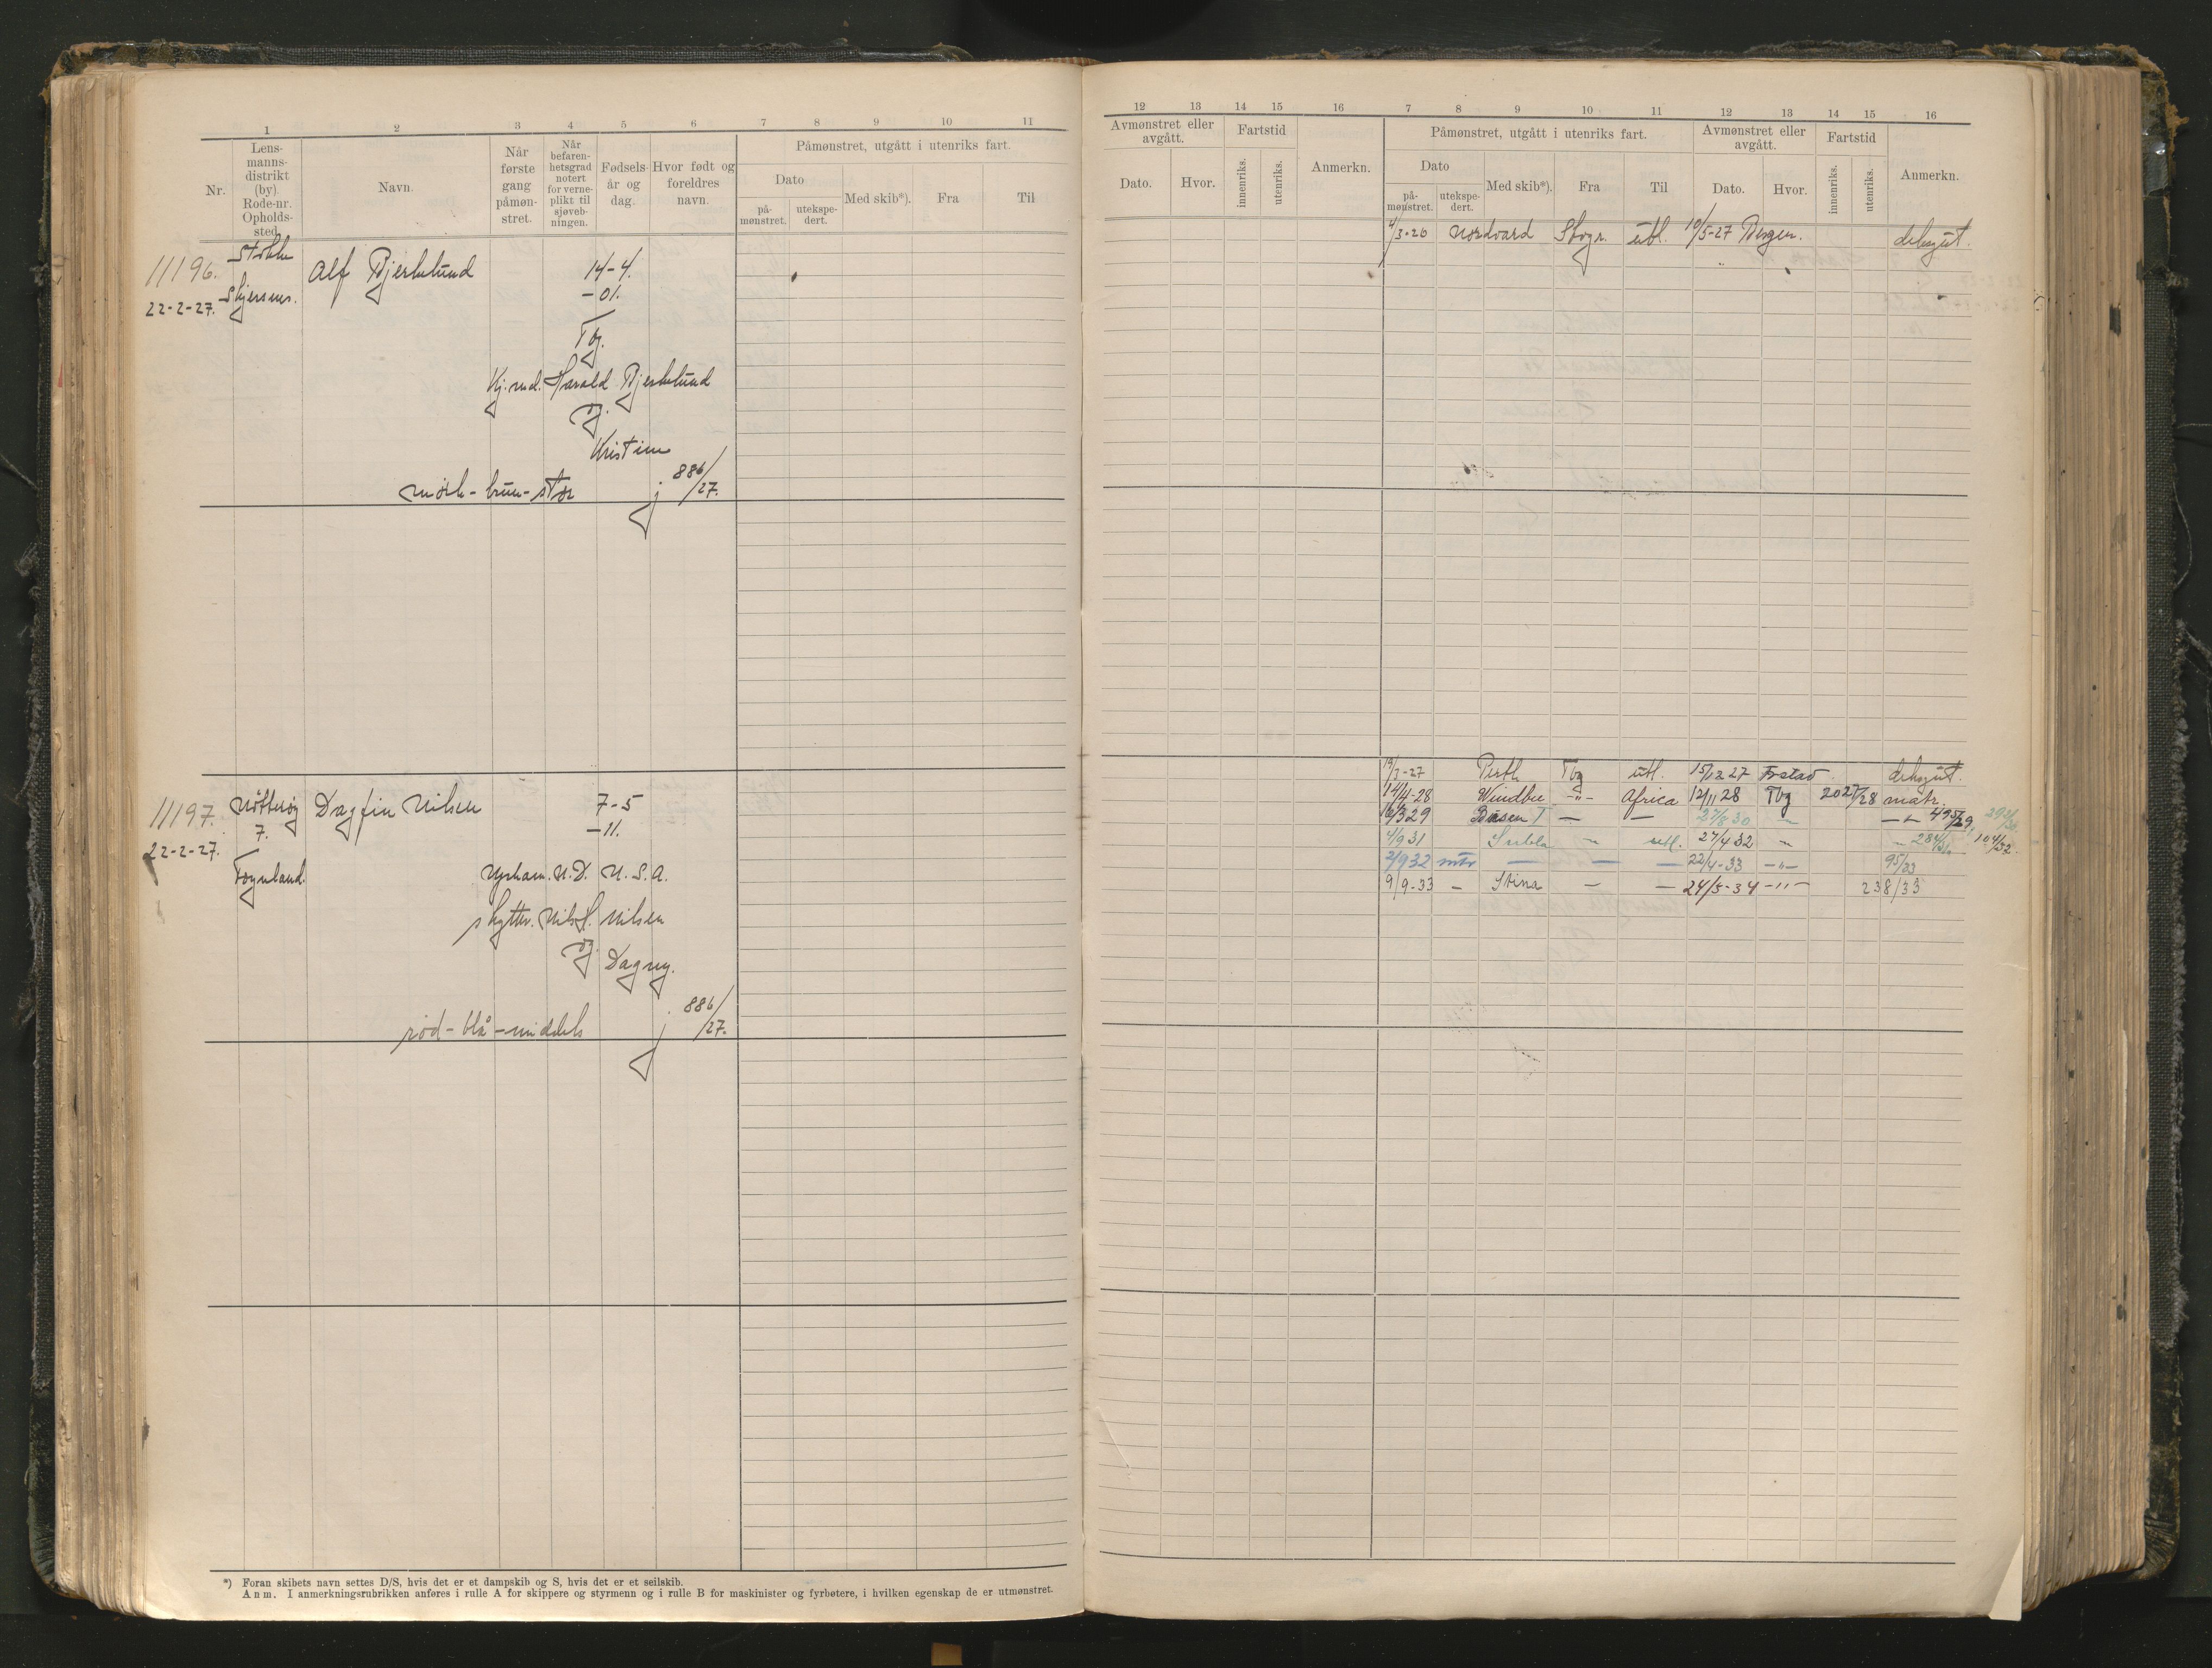 1 2 3 4 5 6 7 8 9 10 11
Nr.
Lens-
manns-
distrikt
(by).
Rode-nr.
Opholds-
sted.
Navn.
Når
første
gang
påmøn-
stret.
Når
befaren-
hetsgrad
notert
for verne-
plikt til
sjøveb-
ningen.
Fødsels-
år og
dag.
Hvor født og
foreldres
navn.
Påmønstret, utgått i utenriks fart.
Dato
på-
mønstret.
utekspe-
dert.
Med skib*).
Fra
Til
11196.
Stokke
22-2-27.
Alf Bjerkelund
14-4.
-01.
Tbg.
Kj.md. Harald Bjerkelund
og
Kristine
mørk-brun-stor
886/27.
11197.
Nøtterøy
7.
22-2-27.
Føynland.
Dagfin Nilsen
7-5
-11.
Upham. N.D. U.S.A.
skytter. Nils H. Nilsen
og
Dagny.
rød-blå-middels
886/27.
*) Foran skibets navn settes D/S, hvis det er et dampskib og S, hvis det er et seilskib.
Anm. I anmerkningsrubrikken anføres i rulle A for skippere og styrmenn og i rulle B for maskinister og fyrbøtere, i hvilken egenskap de er utmønstret.
12 13 14 15 16 7 8 9 10 11 12 13 14 15 16
Avmønstret eller
avgått.
Dato.
Hvor.
Fartstid
innenriks.
utenriks.
Anmerkn.
Påmønstret, utgått i utenriks fart.
Dato
på-
mønstret.
utekspe-
dert.
Med skib*).
Fra
Til
Avmønstret eller
avgått.
Dato.
Hvor.
Fartstid
innenriks.
utenriks.
Anmerkn.
4/3-26 Nordvard utl. 10/5-27 Bergen. deksgut.
Perth Tbg utl. 15/12 27 Frstad deksgut.
14/4-28 Tbg -"- Africa 12/11 28 Tbg 2027/28 matr.
16/3 29 Busen 7 — — 27/8 30 495/29
4/9 31 utl. 27/4 32 284/31 104/32
2/9 32 mtr — — — 22/4-33 -"- 95/33
9/9-33 - Stina — — 24/5-34 -"- 238/33